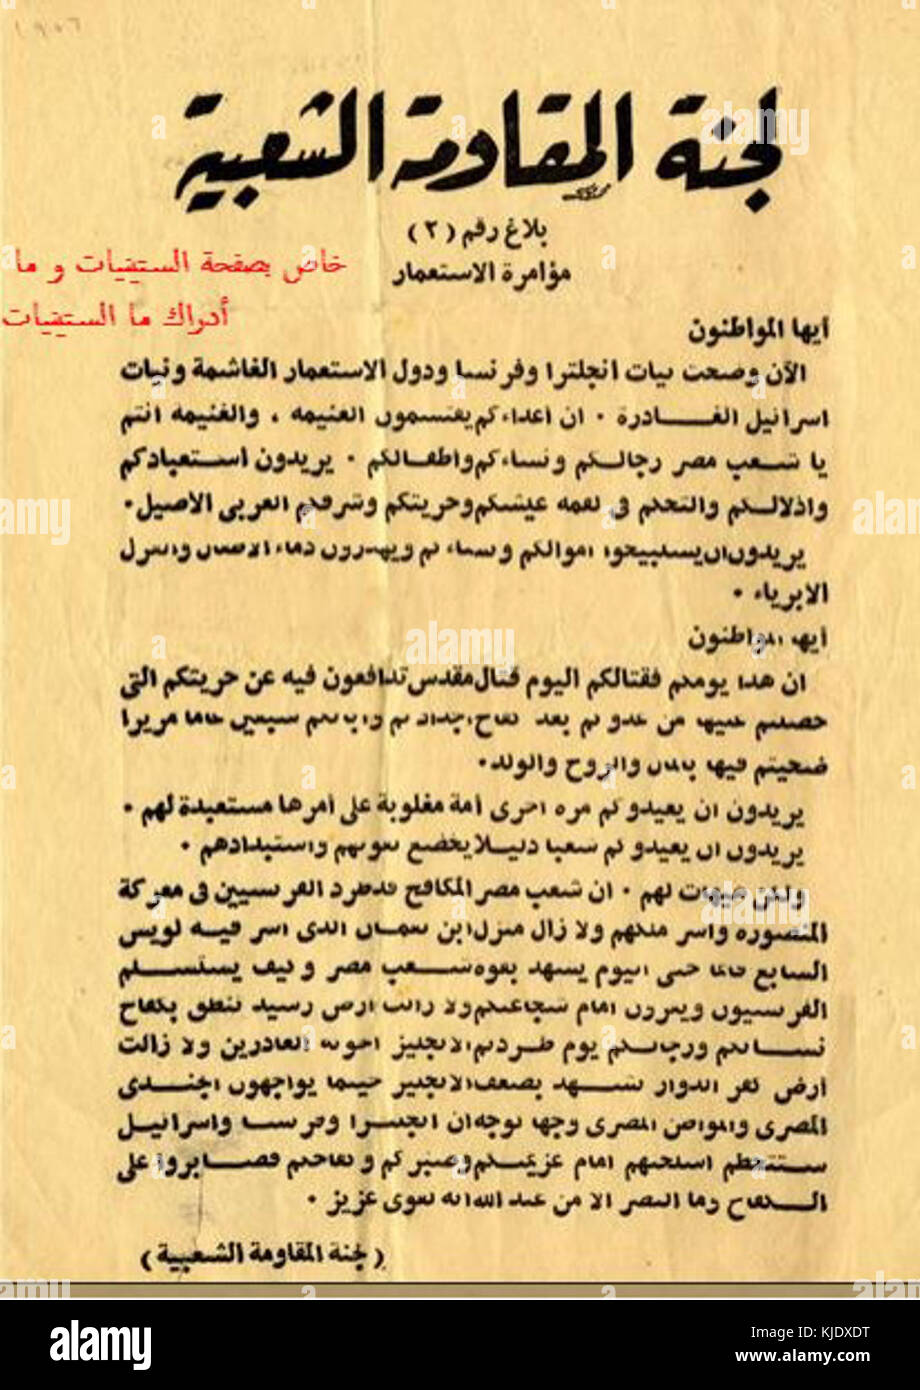 ١٩٥٦
لجنة المقاومة الشعبية
بلاغ رقم (٢)
مؤامرة الاستعمار
خاص بصفحة الستينيات و ما
أدراك ما الستينيات
أيها المواطنون
الآن وضحت نيات انجلترا وفرنسا ودول الاستعمار الغاشمة ونيات
اسرائيل الغادرة . ان أعداءكم يقتسمون الغنيمه ، والغنيمة انتم
يا شعب مصر رجالكم ونساءكم واطفالكم . يريدون استعبادكم
واذلالكم والتحكم فى لقمه عيشكم وحريتكم وشرفكم العربى الأصيل.
يريدون ان يستبيحوا اموالكم ونساءكم ويهدرون دماء الاطفال والعزل
الابرياء .
أيها المواطنون
ان هذا يومكم فقتالكم اليوم قتال مقدس تدافعون فيه عن حريتكم التى
حصلتم عليها من عدوكم بعد كفاح اجدادكم وآبائكم سبعين عاما مريرا
ضحيتم فيها بالمال والروح والولد.
يريدون ان يعيدوكم مره اخرى أمة مغلوبة على أمرها مستعبدة لهم .
يريدون ان يعيدوكم شعبا ذليلا يخضع لقوتهم واستبدادهم .
ولكن هيهات لهم . ان شعب مصر المكافح قد طرد الفرنسيين فى معركة
المنصوره واسر ملكهم ولا زال منزل ابن لقمان الذى اسر فيه لويس
السابع قائما حتى اليوم يشهد بقوه شعب مصر وكيف يستسلم
الفرنسيون ويفرون امام شجاعتكم ولا زالت ارض رشيد تنطق بكفاح
نسائكم ورجالكم يوم طردتم الانجليز الخونه الغادرين ولا زالت
أرض كفر الدوار تشهد بضعف الانجليز حينما يواجهون الجندى
المصرى والمواطن المصرى وجها لوجه ان انجلترا وفرنسا واسرائيل
ستتحطم اسلحتهم امام عزيمتكم وصبركم وكفاحكم فصابروا على
الكفاح وما النصر الا من عند الله انه لقوى عزيز .
(لجنة المقاومة الشعبية)
alamy
Image ID: KJDXDT
www.alamy.com